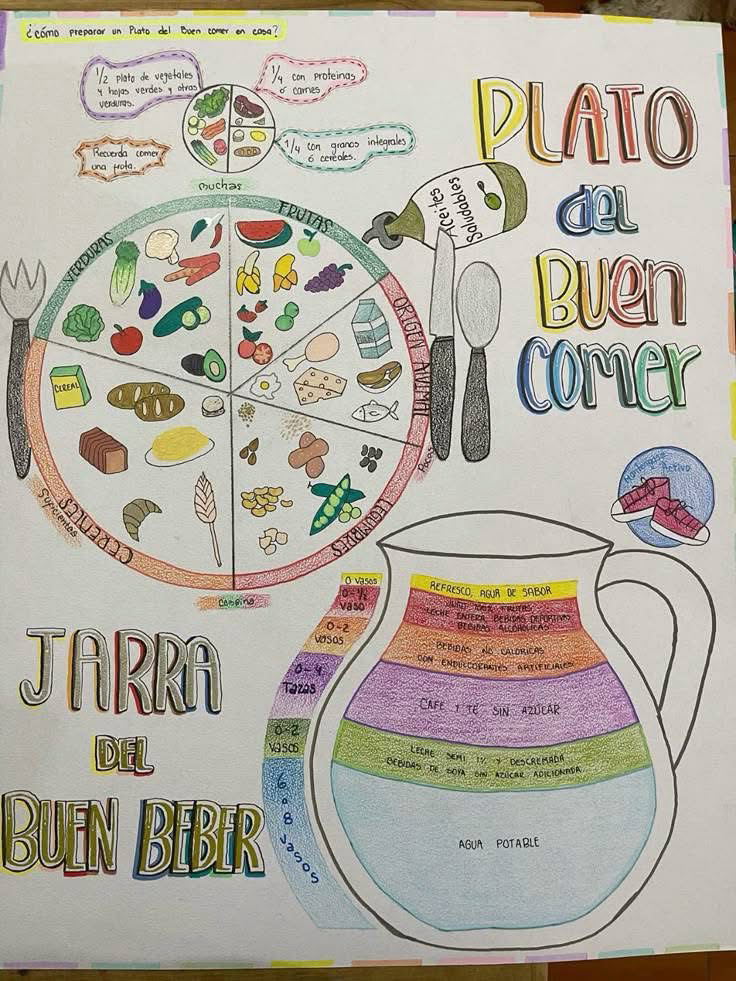 ¿cómo preparar un Plato del Buen comer en casa?
1/2 plato de vegetales
y hojas verdes y otras
verduras.
1/4 con proteinas
ó carnes
Recuerda comer
una fruta.
1/4 con granos integrales
ó cereales.
PLATO
del
Buen
comer
muchas
VERDURAS
FRUTAS
Aceites
Saludables
ORIGEN ANIMAL
Pocos
CEREAL
CEREALES
Suficientes
LEGUMBRES
Combina
Mantengase
Activo
JARRA
DEL
BUEN BEBER
0 vasos
0-1/2
vaso
0-2
vasos
0-4
Tazas
0-2
vasos
6 a 8 vasos
REFRESCO, AGUA DE SABOR
100% FRUTAS
LECHE ENTERA, BEBIDAS DEPORTIVAS
BEBIDAS ALCOHOLICAS
BEBIDAS NO CALORICAS
CON ENDULCORANTES ARTIFICIALES
CAFE Y TÉ SIN AZÚCAR
LECHE SEMI 1% Y DESCREMADA
BEBIDAS DE SOYA SIN AZÚCAR ADICIONADA
AGUA POTABLE